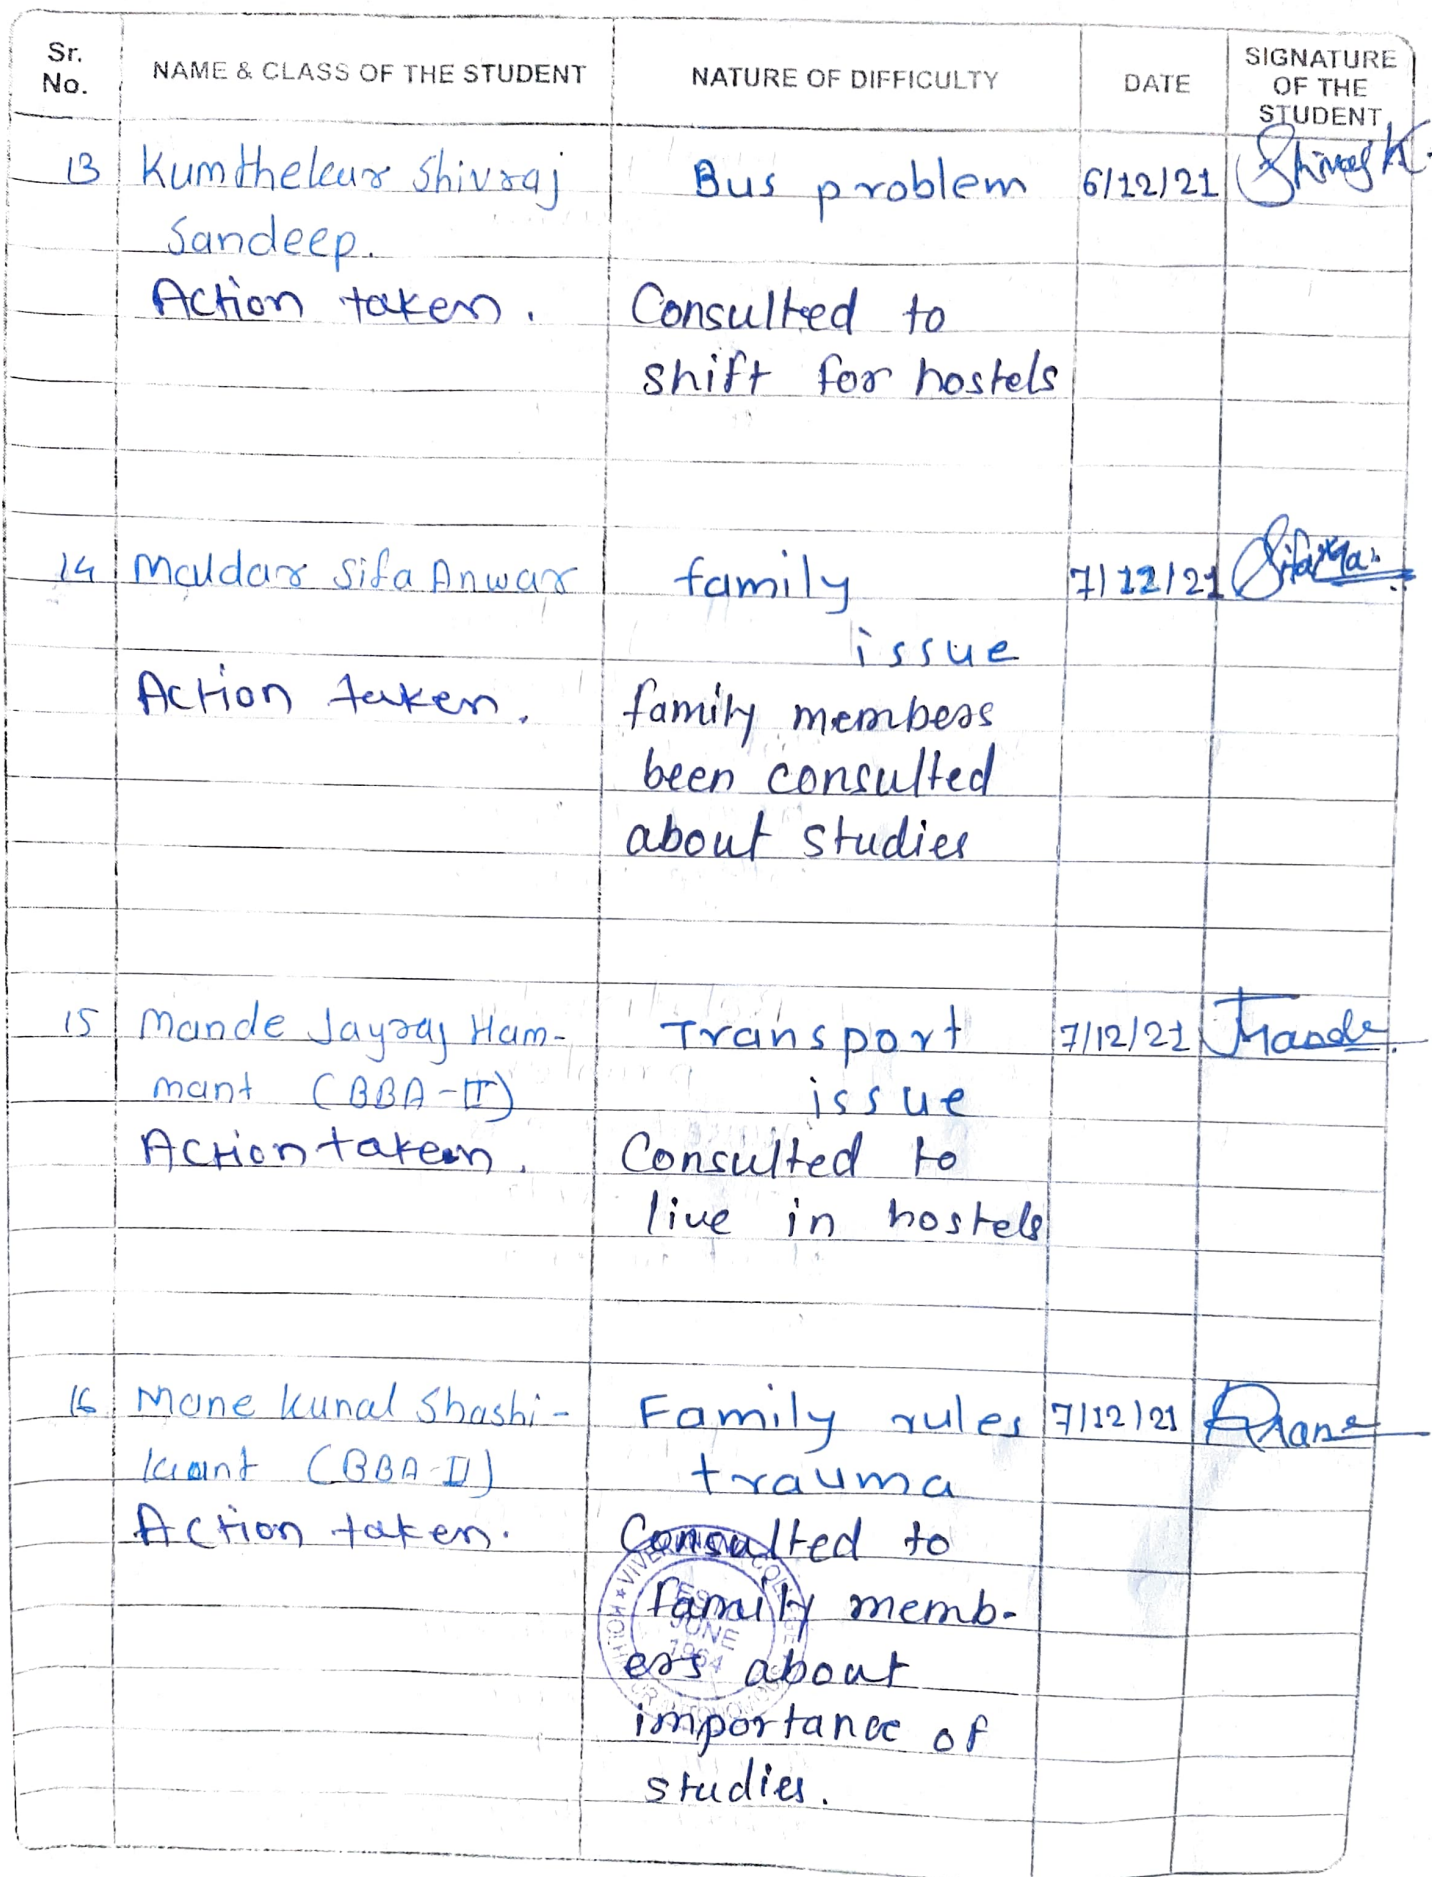 Sr. No. NAME & CLASS OF THE STUDENT NATURE OF DIFFICULTY DATE SIGNATURE OF THE STUDENT
13 Kumthekar Shivraj Bus problem 6/12/21 Shivraj K.
Sandeep.
Action taken. Consulted to
shift for hostels
14 Maldar Sifa Anwar family 7/12/21
issue
Action taken. family members
been consulted
about studies
15 Mande Jayraj Ham- Transport 7/12/21 JMande
mant (BBA-II) issue
Action taken. Consulted to
live in hostels
16 Mane Kunal Shashi- Family rules 7/12/21
kant (BBA-II) trauma
Action taken. Consulted to
family memb-
ers about
importance of
studies.
VIVEKANAND COLLEGE
ESTD
JUNE
1964